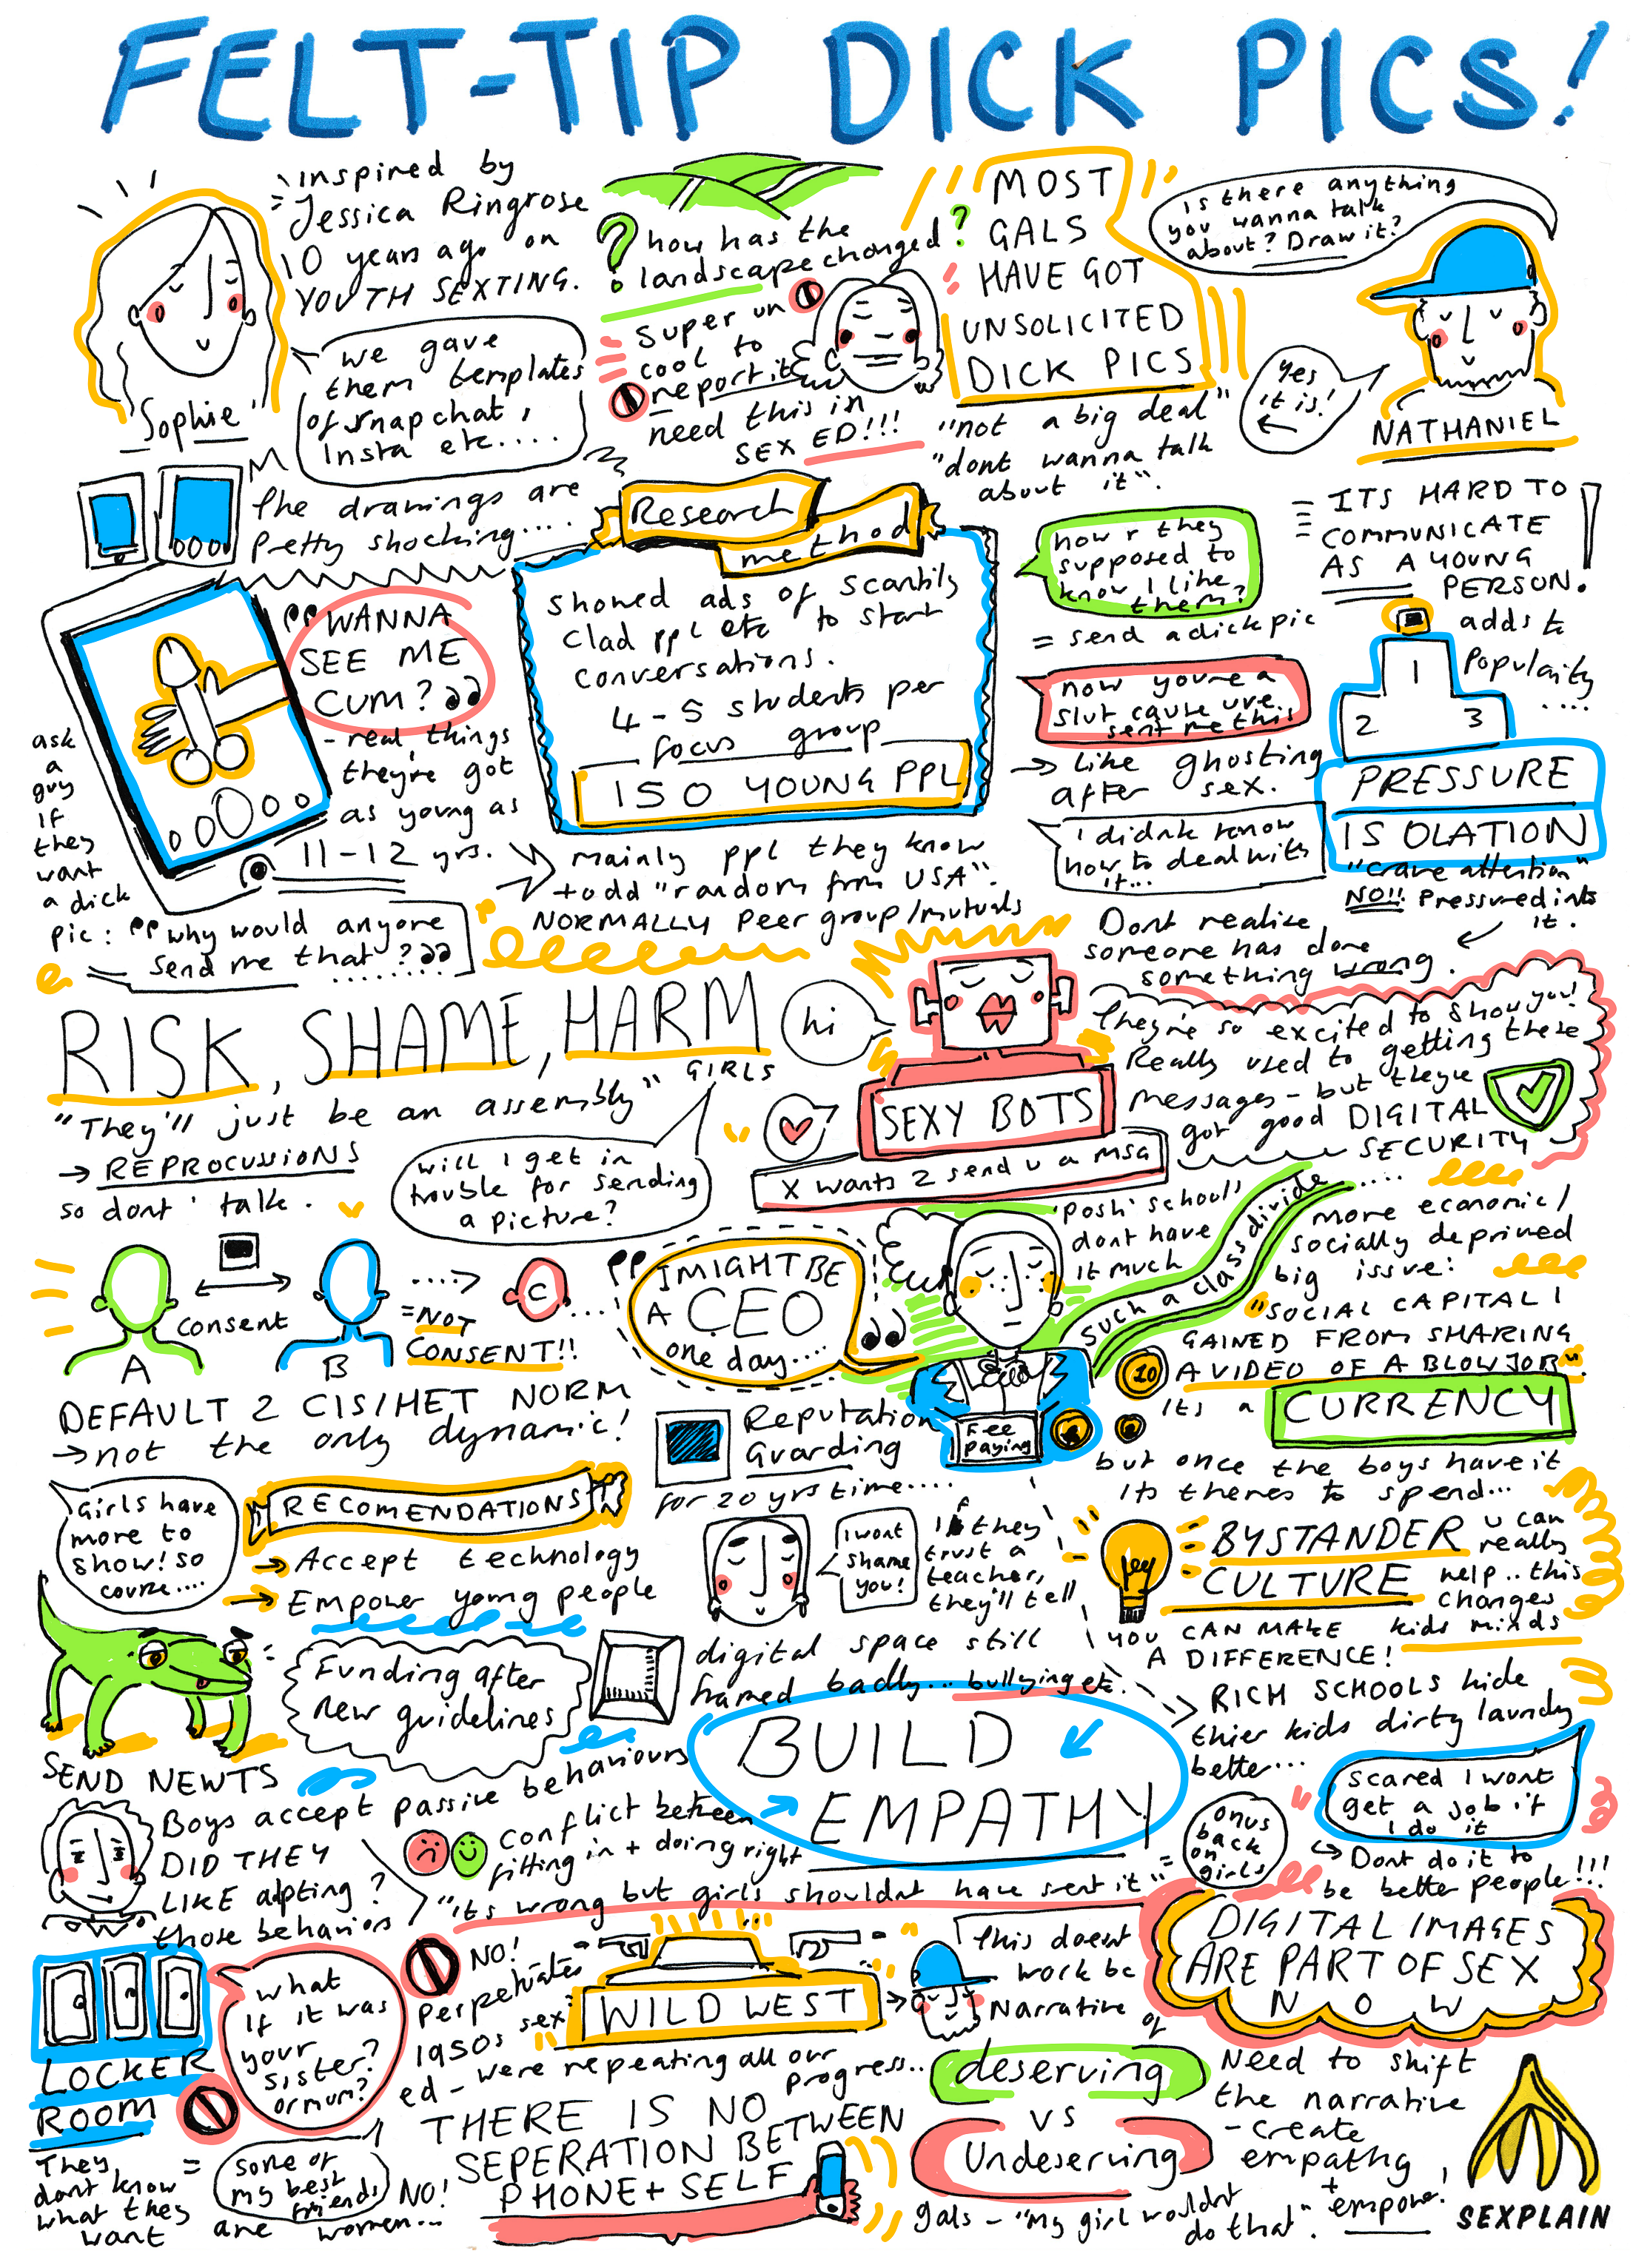 FELT-TIP DICK PICS!
Inspired by
Jessica Ringrose
10 years ago on
YOUTH SEXTING.
Sophie
we gave
them templates
of snapchat,
Insta etc....
The drawings are
Pretty shocking....
? how has the
landscape changed?
Super un
cool to
report it
need this in
SEX ED!!!
MOST
GALS
HAVE GOT
UNSOLICITED
DICK PICS
"not a big deal"
"dont wanna talk
about it".
Is there anything
you wanna talk
about? Draw it?
Yes
it is!
NATHANIEL
Research
method
Showed ads of scantily
clad ppl etc to start
conversations.
4-5 students per
focus group
150 YOUNG PPL
"WANNA
SEE ME
CUM?"
- real things
they're got
as young as
11-12 yrs.
ask
a
guy
if
they
want
a dick
pic: "why would anyone
send me that?"
.......
mainly ppl they know
+ odd "random from USA".
NORMALLY Peer group/mutuals
how r they
supposed to
know I like
them?
= send a dick pic
now you're a
slut cause uve
sent me this
→ Like ghosting
after sex.
I didnt know
how to deal with
it...
ITS HARD TO
COMMUNICATE
AS A YOUNG
PERSON!
adds to
Popularity
....
1
2 3
PRESSURE
ISOLATION
"Crave attention"
NO!! Pressured into
it.
Dont realise
someone has done
something wrong.
RISK, SHAME, HARM
GIRLS
"They'll just be an assembly"
→ REPROCUSSIONS
so dont talk.
will I get in
trouble for sending
a picture?
hi
SEXY BOTS
X wants 2 send u a msg
They're so excited to show you!
Really used to getting these
messages - but theyve
got good DIGITAL
SECURITY
A
consent
B
....>
=NOT
CONSENT!!
C
....
DEFAULT 2 CIS/HET NORM
→not the only dynamic!
"I MIGHT BE
A CEO
one day...."
'Posh' schools
dont have
it much
Such a class divide....
more economic/
socially deprived
big issue:
"SOCIAL CAPITAL I
GAINED FROM SHARING
A VIDEO OF A BLOWJOB"
10
its a CURRENCY
but once the boys have it
its theres to spend...
Fee
paying
Reputation
Guarding
for 20 yrs time....
Girls have
more to
show! so
course....
RECOMENDATIONS
→ Accept technology
→ Empower young people
Funding after
new guidelines
SEND NEWTS
I wont
shame
you!
If they
trust a
teacher,
they'll tell
digital space still
framed badly... bullying etc.
BYSTANDER
CULTURE
u can
really
help.. this
changes
kids minds
YOU CAN MAKE
A DIFFERENCE!
RICH SCHOOLS hide
thier kids dirty laundry
better...
BUILD
EMPATHY
scared I wont
get a job if
I do it
→ Dont do it to
be better people!!!
onus
back
on
girls
Boys accept passive behaviours
DID THEY
LIKE adpting?
those behaviors
conflict between
fitting in + doing right
"its wrong but girls shouldnt have sent it" =
LOCKER
ROOM
They
dont know
what they
want
=
what
if it was
your
sister?
or mum?
some of
my best
friends
are women...
NO!
NO!
Perpetuates
1950s sex
ed - were repeating all our
progress..
WILD WEST
This doesnt
work bc
Narrative
of
deserving
VS
Undeserving
gals - "my girl wouldnt
do that".
DIGITAL IMAGES
ARE PART OF SEX
NOW
Need to shift
the narrative
- create
empathy
+
empower!
THERE IS NO
SEPERATION BETWEEN
PHONE + SELF
SEXPLAIN